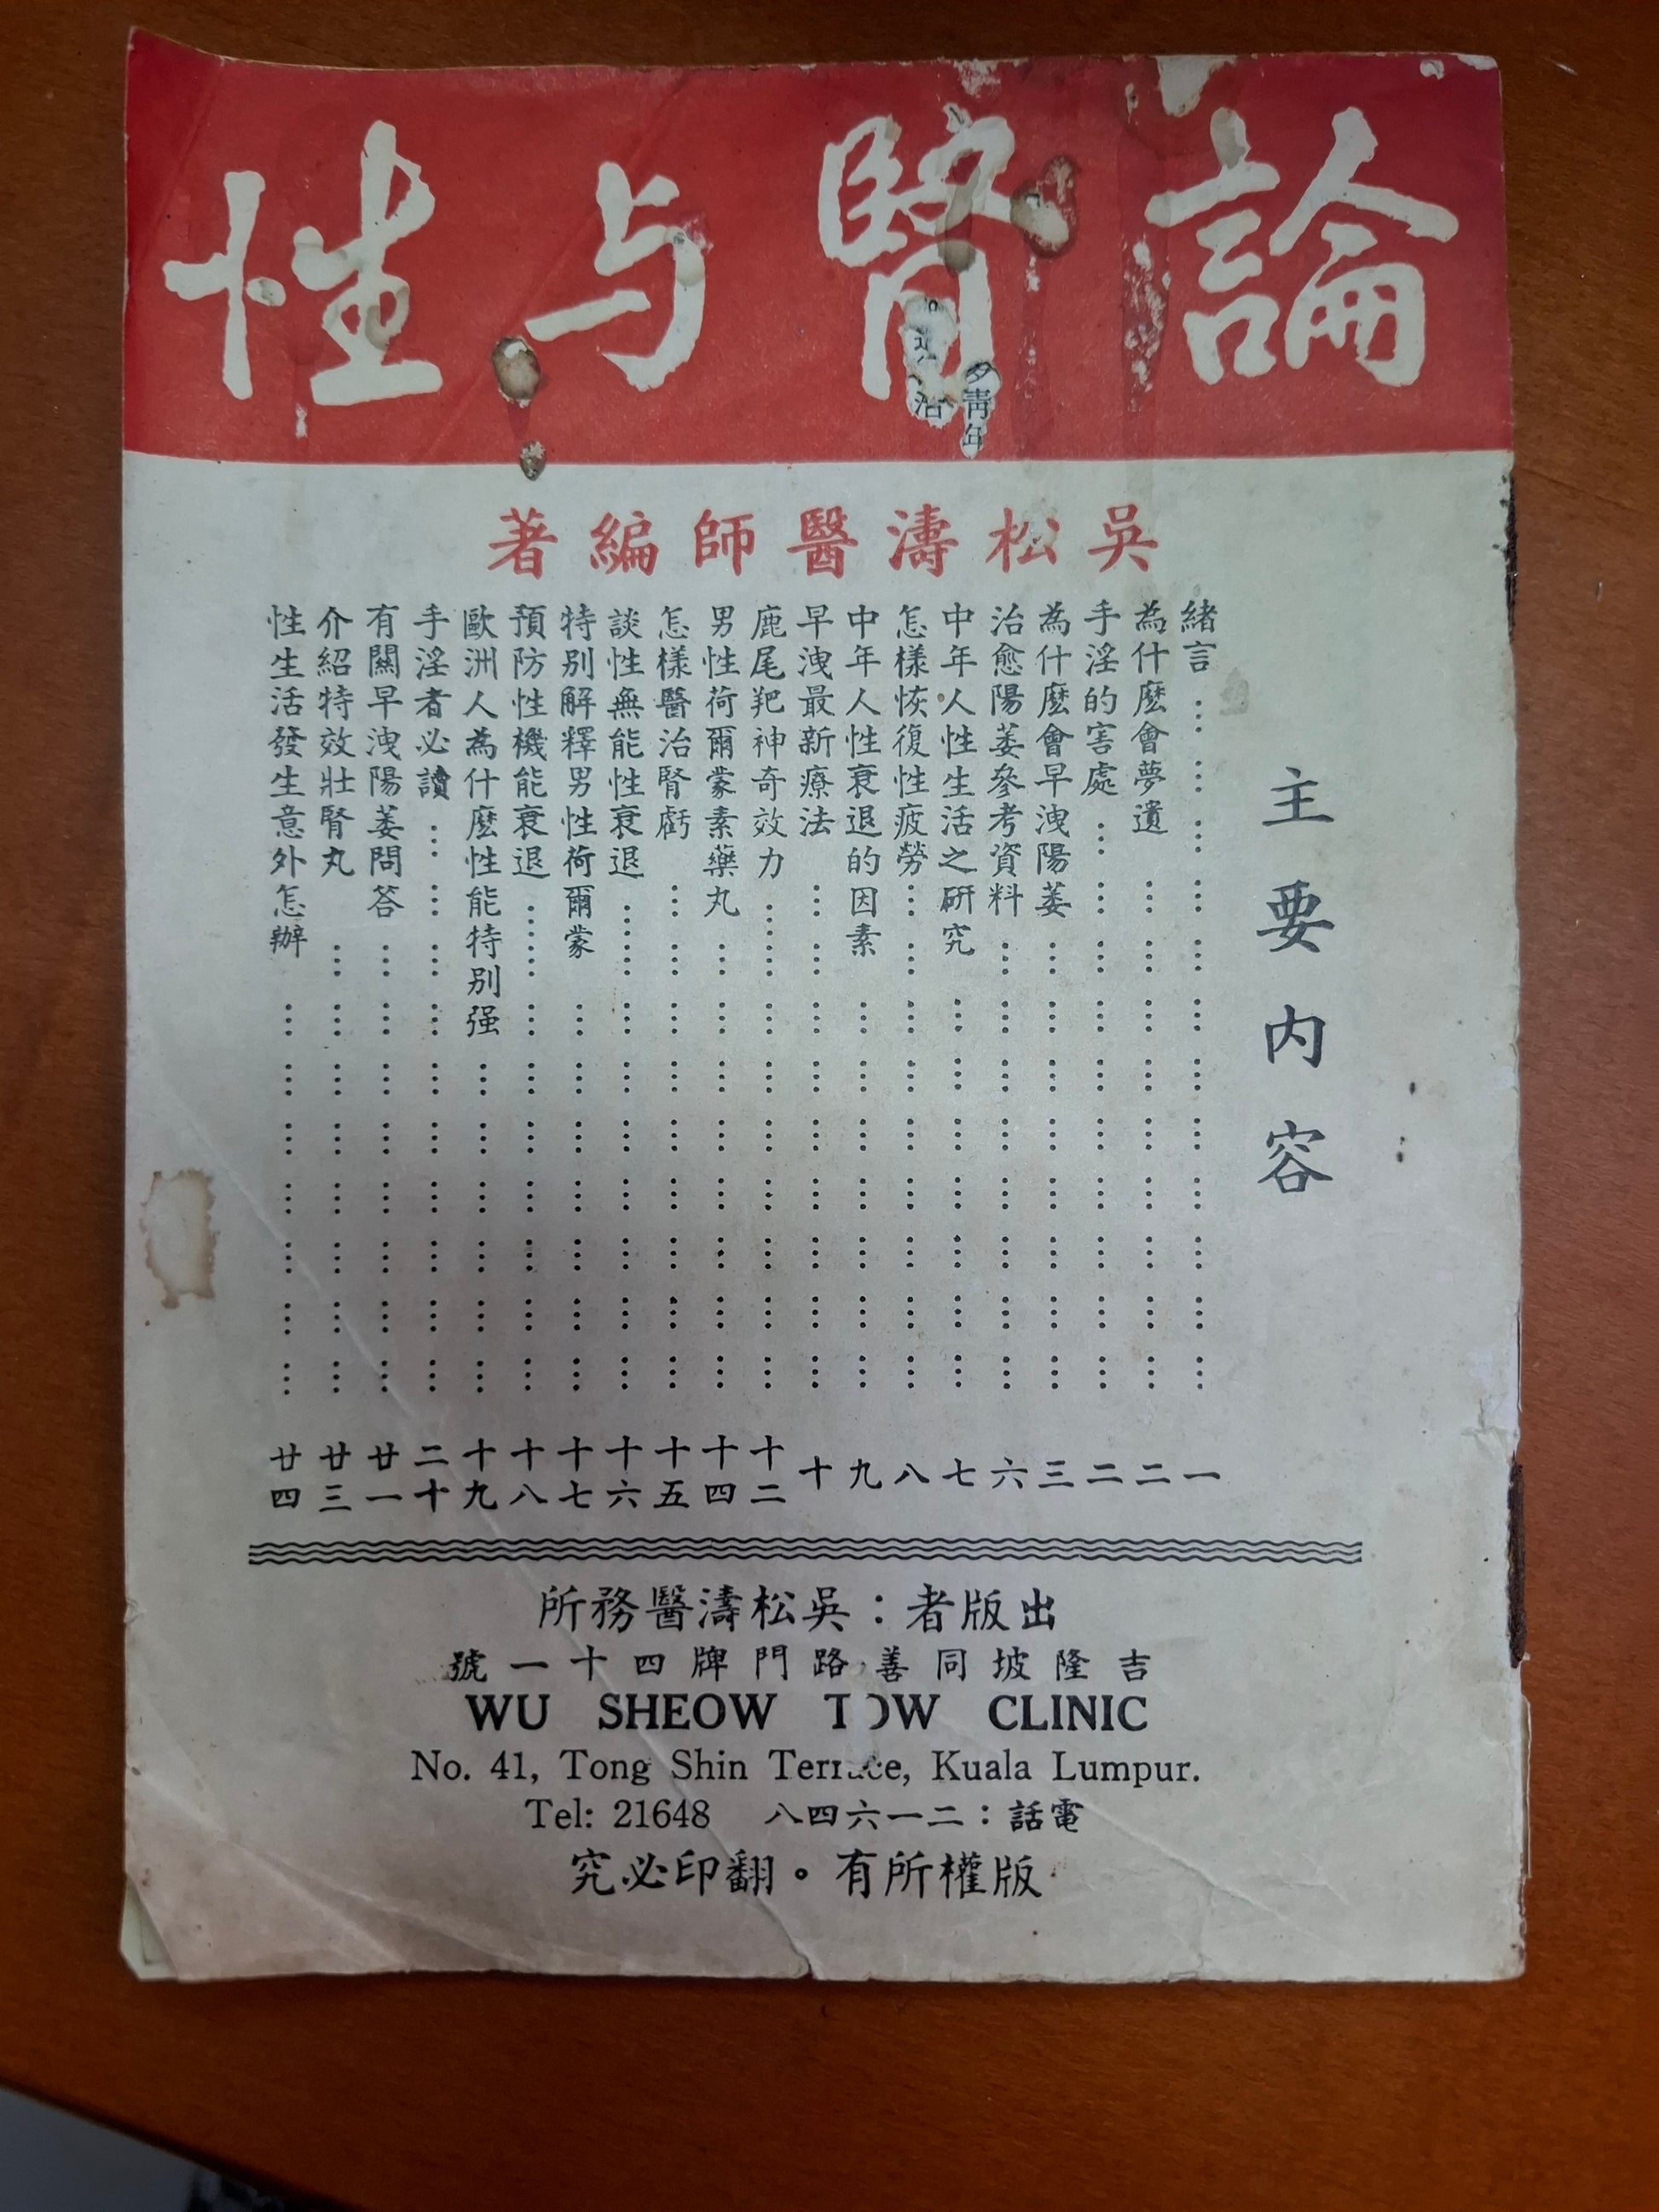 論腎与性
吳松濤醫師編著
主要內容
緒言⋯⋯⋯⋯一
為什麼會夢遺⋯⋯⋯⋯二
手淫的害處⋯⋯⋯⋯二
為什麼會早洩陽萎⋯⋯⋯⋯三
治愈陽萎參考資料⋯⋯⋯⋯六
中年人性生活之研究⋯⋯⋯⋯七
怎樣恢復性疲勞⋯⋯⋯⋯八
中年人性衰退的因素⋯⋯⋯⋯九
早洩最新療法⋯⋯⋯⋯十
鹿尾羓神奇效力⋯⋯⋯⋯十二
男性荷爾蒙素藥丸⋯⋯⋯⋯十四
怎樣醫治腎虧⋯⋯⋯⋯十五
談性無能性衰退⋯⋯⋯⋯十六
特别解釋男性荷爾蒙⋯⋯⋯⋯十七
預防性機能衰退⋯⋯⋯⋯十八
歐洲人為什麼性能特别强⋯⋯⋯⋯十九
手淫者必讀⋯⋯⋯⋯二十
有關早洩陽萎問答⋯⋯⋯⋯廿一
介紹特效壯腎丸⋯⋯⋯⋯廿三
性生活發生意外怎辦⋯⋯⋯⋯廿四
出版者：吳松濤醫務所
吉隆坡同善路門牌四十一號
WU SHEOW TOW CLINIC
No. 41, Tong Shin Terrace, Kuala Lumpur.
Tel: 21648 電話：二一六四八
版權所有。翻印必究